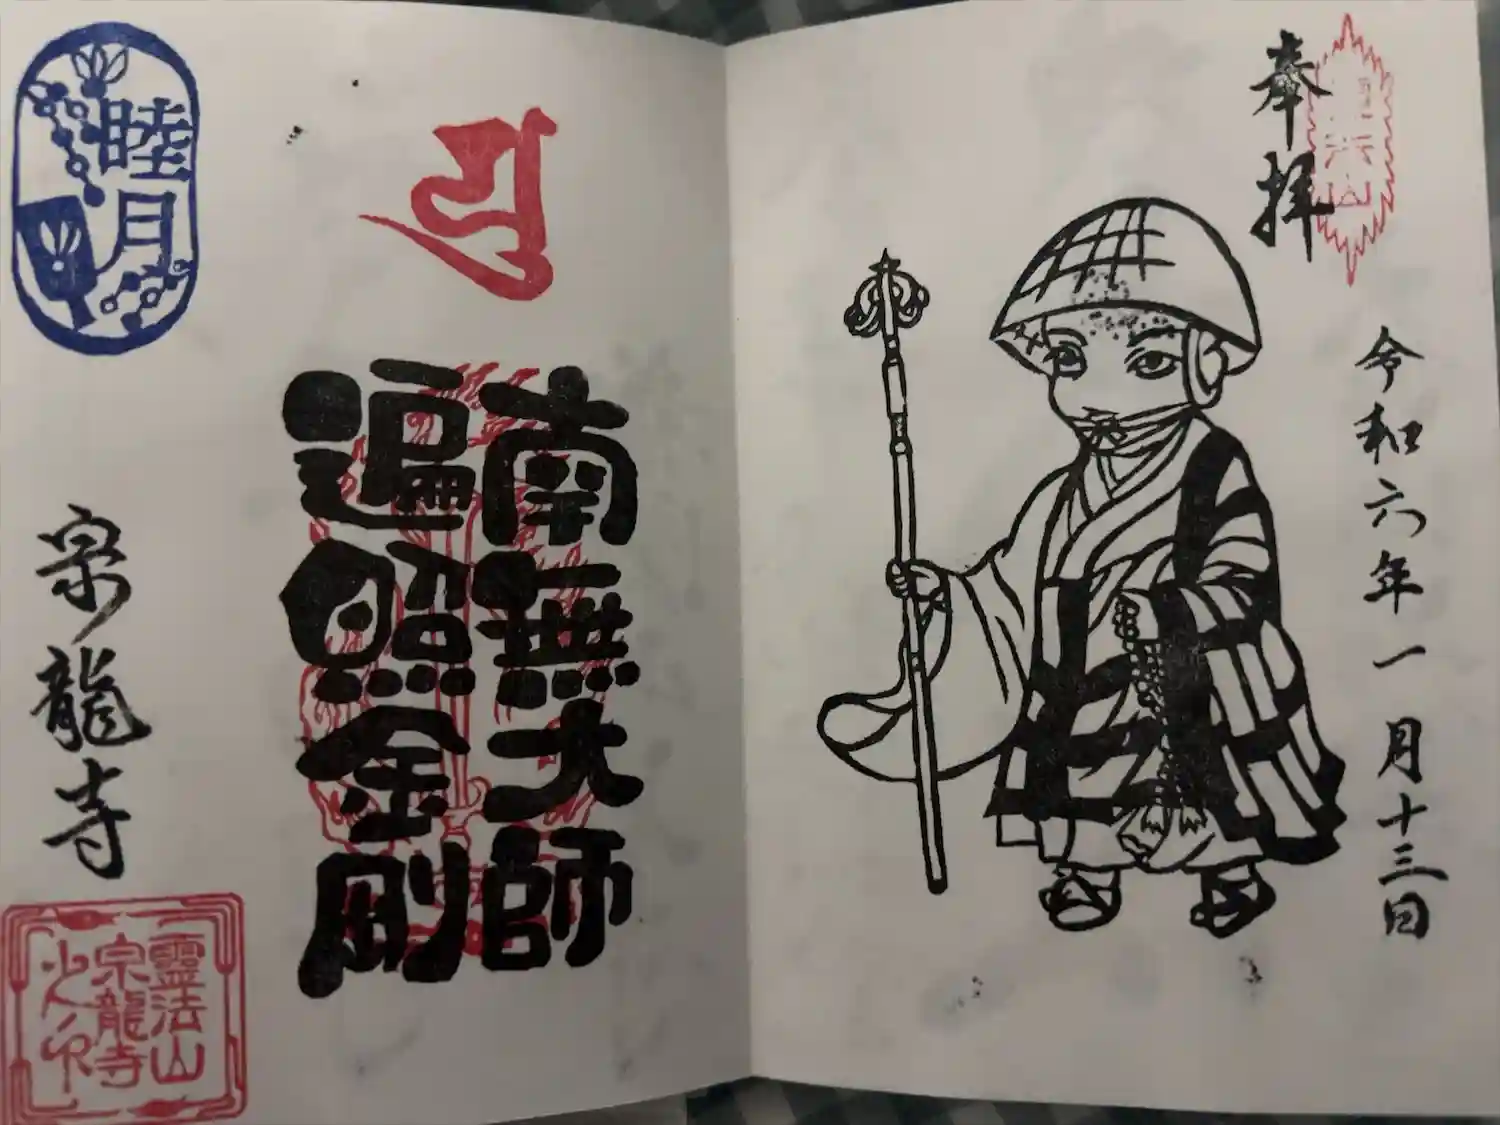 奉拝
令和六年一月十三日
睦月
南無大師
遍照金剛
宗龍寺
霊法山
宗龍寺
之印